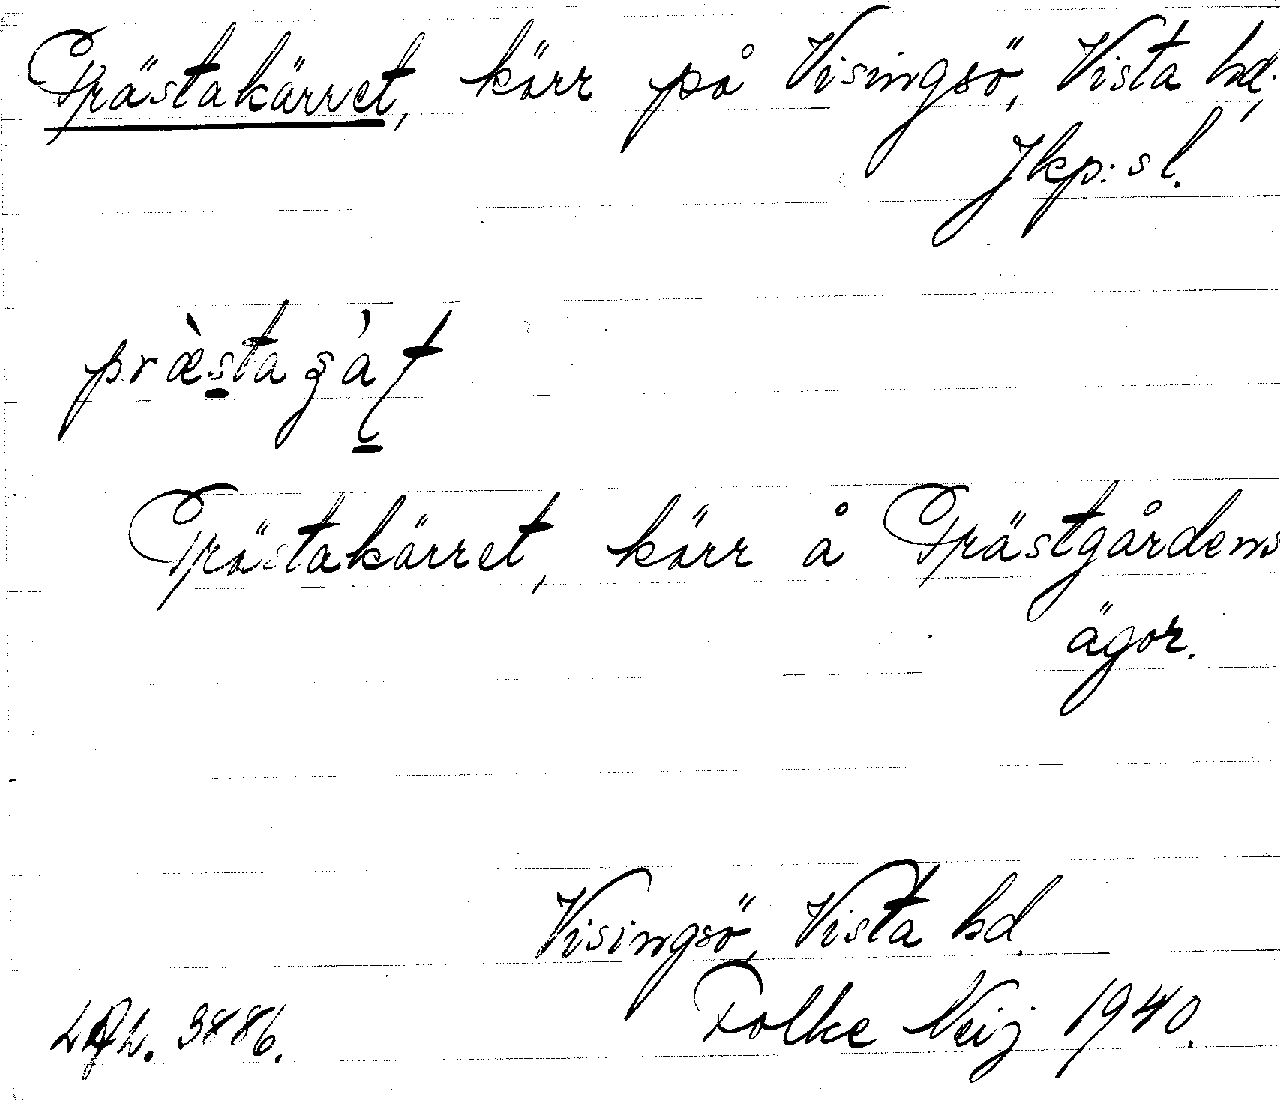 Prästakärret, kärr på Visingsö, Vista hd,
Jkp:s l.
Prästakärret, kärr å Prästgårdens
ägor.
Visingsö, Vista hd.
Folke Neij 1940.
3886.